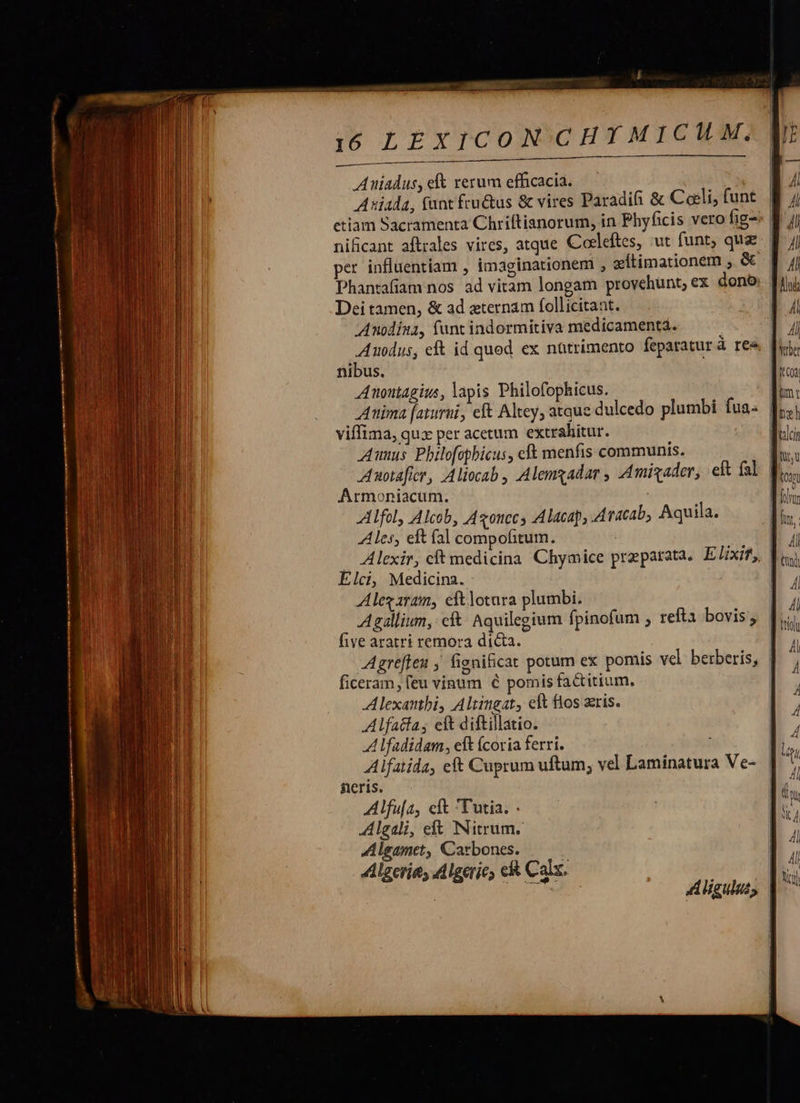 16 LEXICON CHYMICUM.
Aniadus, eſt rerum efficacia.
Aniada, ſunt fructus & vires Paradiſi & Cœli, ſunt
etiam Sacramenta Chriſtianorum, in Phyſicis vero ſig-
nificant aſtrales vires, atque Cœleſtes, ut ſunt, quæ
per influentiam, imaginationem, æſtimationem, &
Phantaſiam nos ad vitam longam provehunt, ex dono
Dei tamen, & ad æternam ſollicitant.
Anodina, ſunt indormitiva medicamenta.
Anodus, eſt id quod ex nutrimento ſeparatur à re-
nibus.
Anontagius, lapis Philoſophicus.
Anima ſaturni, eſt Altey, atque dulcedo plumbi ſua-
viſſima, quæ per acetum extrahitur.
Annus Philoſophicus, eſt menſis communis.
Anotaſier, Aliocab, Alemzadar, Amizader, eſt ſal
Armoniacum.
Alfol, Alcob, Azonec, Alacap, Aracab, Aquila.
Ales, eſt ſal compoſitum.
Alexir, eſt medicina Chymice præparata. Elixir,
Elci, Medicina.
Alezaram, eſt lotura plumbi.
Agallium, eſt Aquilegium ſpinoſum, reſta bovis,
ſive aratri remora dicta.
Agreſteu, ſignificat potum ex pomis vel berberis,
ſiceram, ſeu vinum é pomis factitium.
Alexanthi, Altingat, eſt flos æris.
Alfacta, eſt diſtillatio.
Alfadidam, eſt ſcoria ferri.
Alfatida, eſt Cuprum uſtum, vel Laminatura Ve-
neris.
Alfuſa, eſt Tutia.
Algali, eſt Nitrum.
Algamet, Carbones.
Algeriæ, Algeric, eſt Calx.
Aligulus,